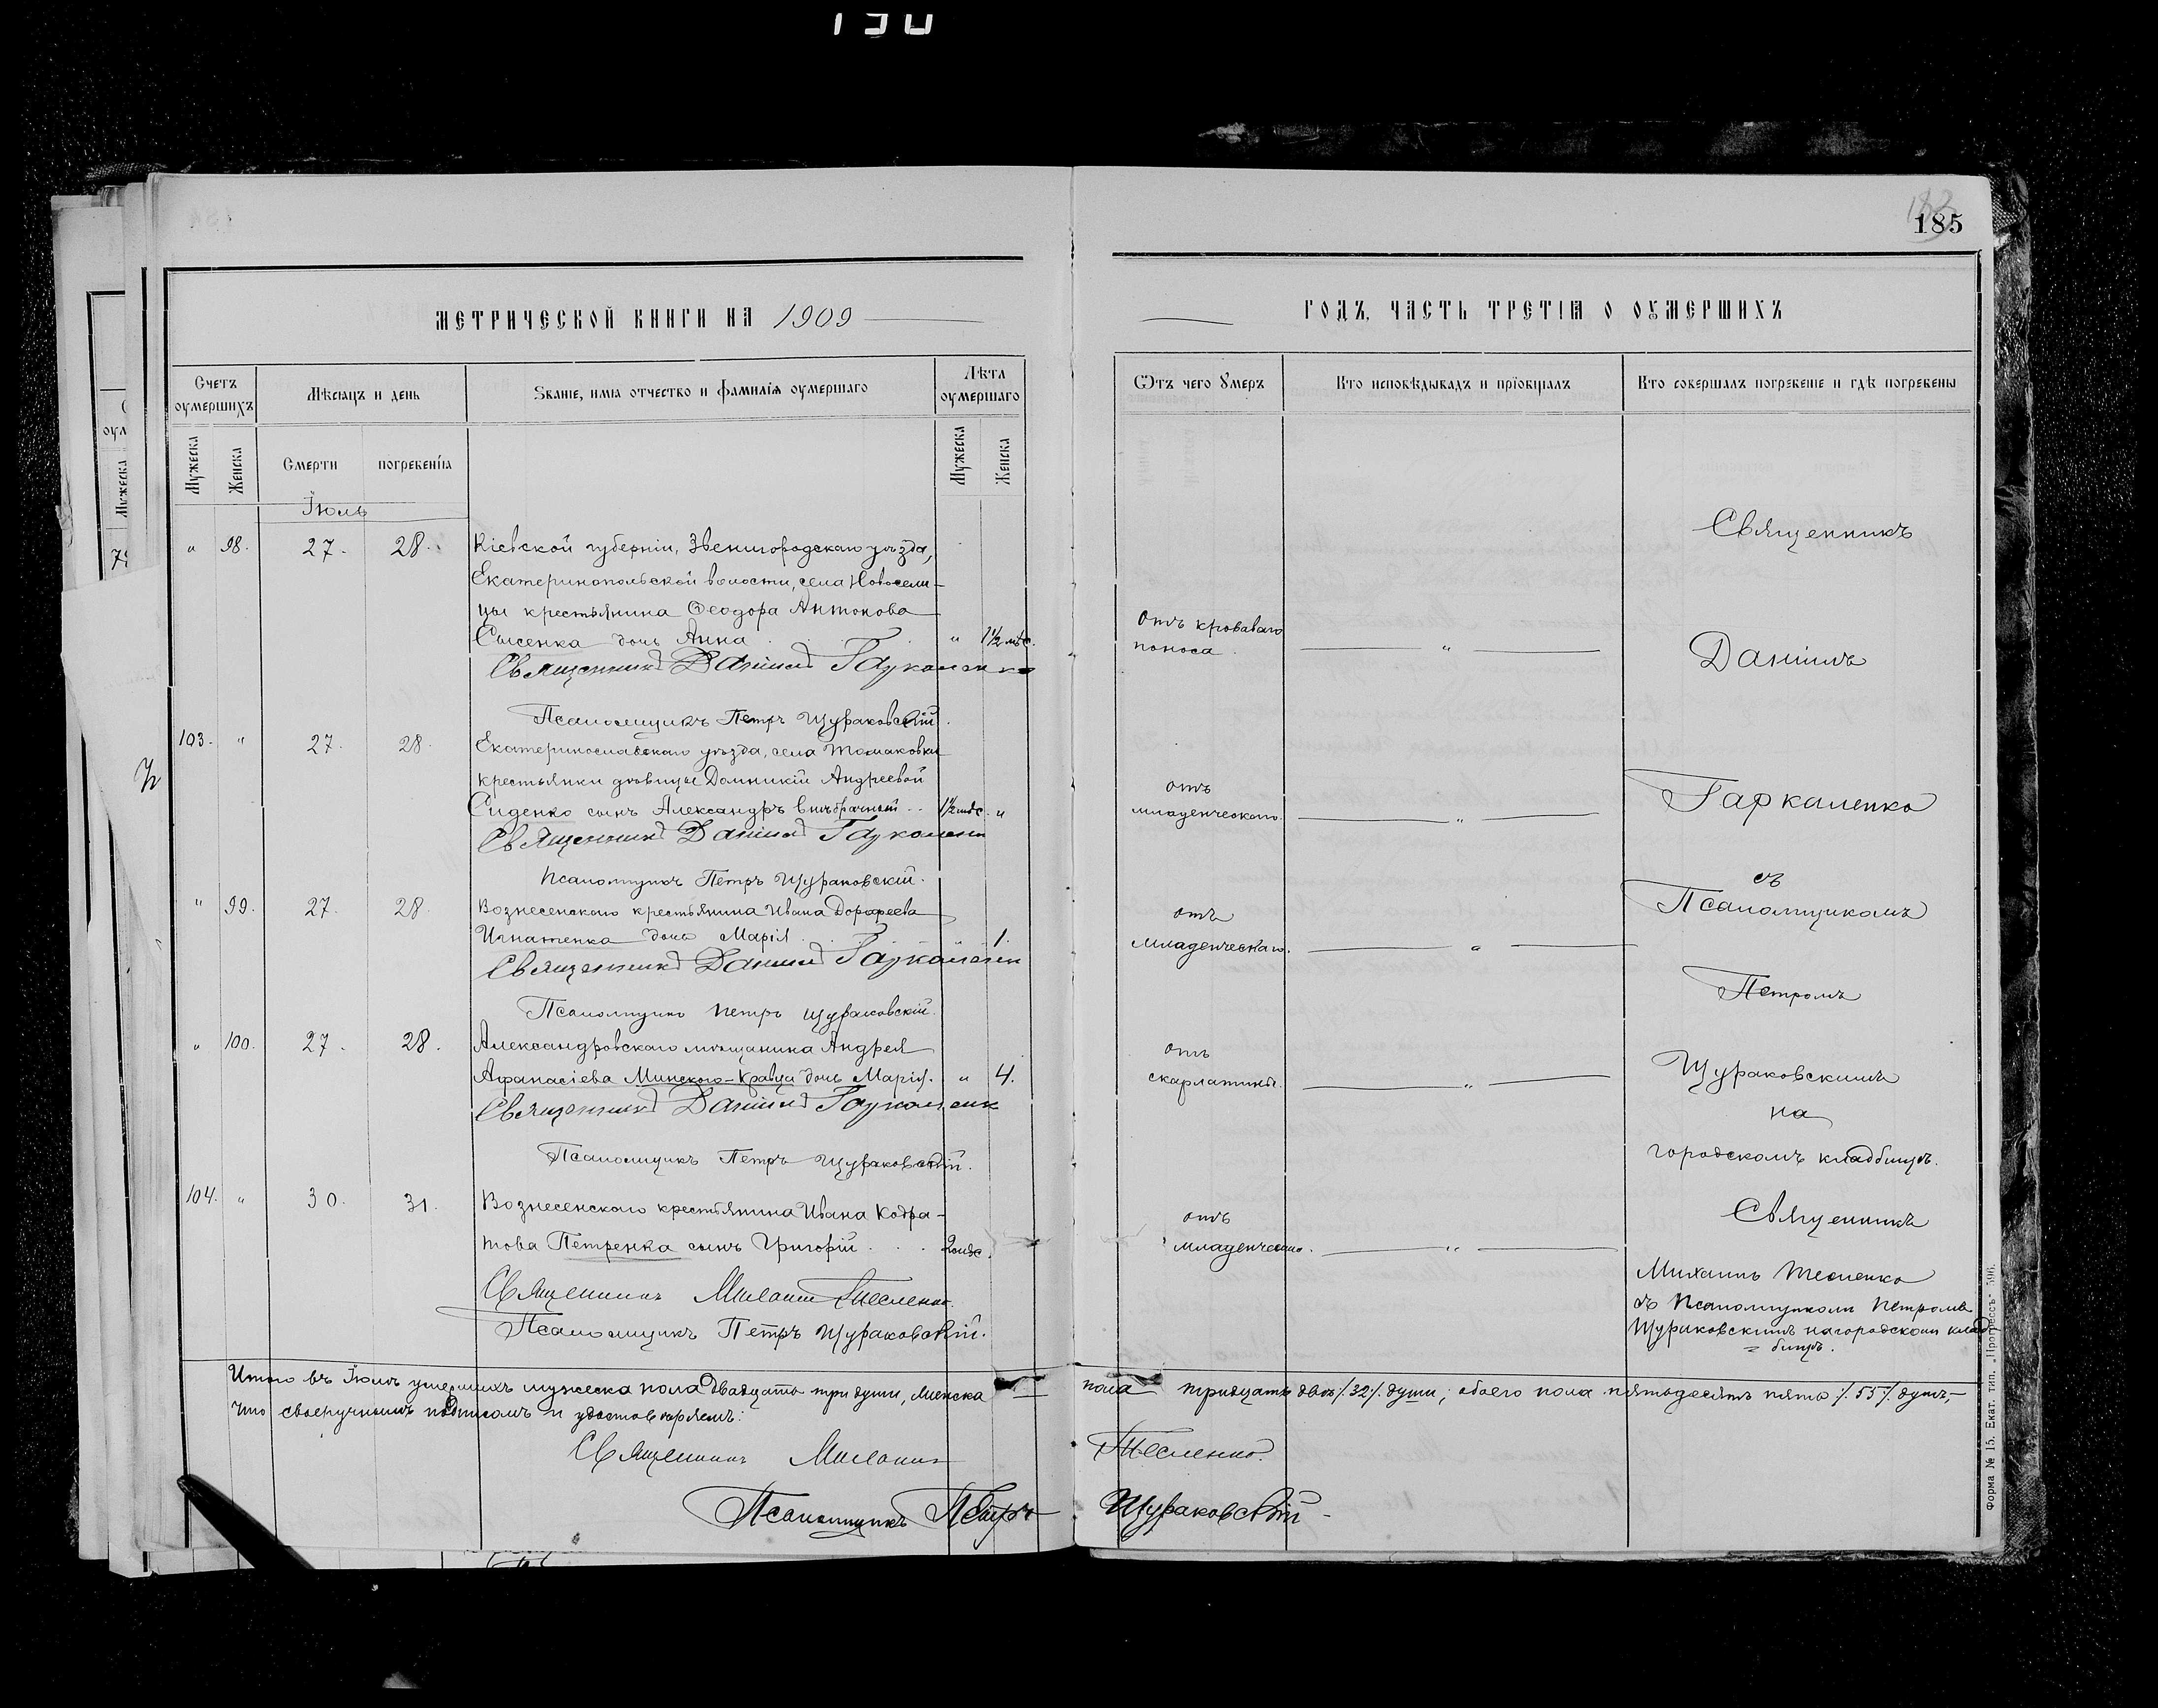 130
183
185
МЕТРИЧЕСКОЙ КНИГИ НА 1909
ГОДЪ, ЧАСТЬ ТРЕТІѦ О ОУМЕРШИХЪ
Счетъ оумершихъ
Мѣсяцъ и день
Званіе, имя отчество и фамилія оумершаго
Лѣта оумершаго
Ѿтъ чего Умеръ
Кто исповѣдывалъ и прїобщалъ
Кто совершалъ погребеніе и гдѣ погребены
Мужеска
Женска
Смерти
погребенїя
Мужеска
Женска
Іюль
" 98. 27. 28. Кіевской губерніи, Звенигородскаго уѣзда,
Екатеринопольской волости, села Новосели-
цы крестьянина Ѳеодора Антонова
Сысенка дочь Анна " 1½ мѣс.
Отъ кроваваго
поноса.
Священникъ Даніилъ Гаркаленко
Псаломщикъ Петръ Щураковскій.
103. " 27. 28. Екатеринославскаго уѣзда, села Томаковки
крестьянки дѣвицы Домникіи Андреевой
Сиденко сынъ Александръ внѣбрачный 1½ мѣс. "
отъ
младенческаго.
Священникъ Даніилъ Гаркаленко
Псаломщикъ Петръ Щураковскій.
" 99. 27. 28. Вознесенскаго крестьянина Ивана Дорофеева
Игнатенка дочь Марія " 1.
отъ
младенческаго.
Священникъ Даніилъ Гаркаленк
Псаломщикъ Петръ Щураковскій.
" 100. 27. 28. Александровскаго мѣщанина Андрея
Афанасіева Минского-Кравца дочь Марія. " 4.
отъ
скарлатины.
Священникъ Даніилъ Гаркаленк
Псаломщикъ Петръ Щураковскій.
Священникъ
Даніилъ
Гаркаленко
съ
Псаломщикомъ
Петромъ
Щураковскимъ
на
городскомъ кладбищѣ.
104. " 30. 31. Вознесенскаго крестьянина Ивана Кодра-
това Петренка сынъ Григорій 2 мѣс.
отъ
младенческаго.
Священникъ Михаилъ Тесленко.
Псаломщикъ Петръ Щураковскій.
Священникъ
Михаилъ Тесленко
съ Псаломщикомъ Петромъ
Щураковскимъ на городскомъ клад-
бищѣ.
Итого въ Іюлѣ умершихъ мужеска пола двадцать три души, женска пола тридцать двѣ /.32/. души; обоего пола пятьдесятъ пять /.55/. душъ,—
что своеручнымъ подписомъ и удостовѣряемъ:
Священникъ Михаилъ Тесленко.
Псаломщикъ Петръ Щураковскій.
Форма № 15. Екат. тип. „Прогрессъ" 596.